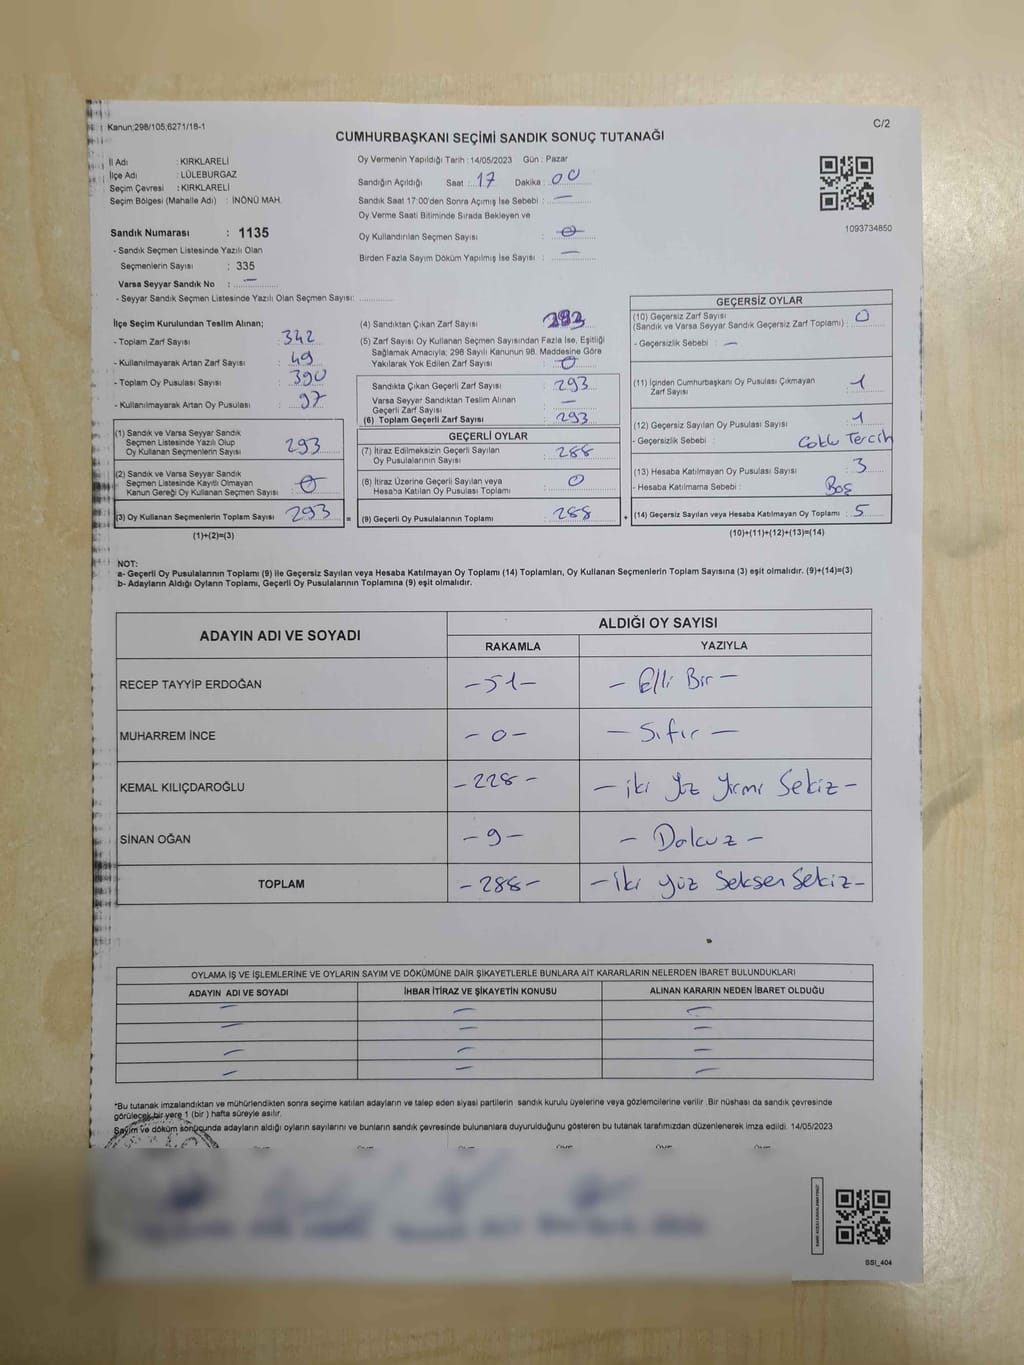 Kanun;298/105;6271/18-1
C/2
CUMHURBAŞKANI SEÇİMİ SANDIK SONUÇ TUTANAĞI
İl Adı : KIRKLARELİ
İlçe Adı : LÜLEBURGAZ
Seçim Çevresi : KIRKLARELİ
Seçim Bölgesi (Mahalle Adı) : İNÖNÜ MAH.
Sandık Numarası : 1135
- Sandık Seçmen Listesinde Yazılı Olan
Seçmenlerin Sayısı : 335
Varsa Seyyar Sandık No : —
- Seyyar Sandık Seçmen Listesinde Yazılı Olan Seçmen Sayısı:
Oy Vermenin Yapıldığı Tarih : 14/05/2023 Gün : Pazar
Sandığın Açıldığı Saat : 17 Dakika : 00
Sandık Saat 17:00'den Sonra Açımış İse Sebebi : —
Oy Verme Saati Bitiminde Sırada Bekleyen ve
Oy Kullandırılan Seçmen Sayısı : 0
Birden Fazla Sayım Döküm Yapılmış İse Sayısı : —
1093734850
İlçe Seçim Kurulundan Teslim Alınan;
- Toplam Zarf Sayısı : 342
- Kullanılmayarak Artan Zarf Sayısı : 49
- Toplam Oy Pusulası Sayısı : 390
- Kullanılmayarak Artan Oy Pusulası : 97
(1) Sandık ve Varsa Seyyar Sandık
Seçmen Listesinde Yazılı Olup
Oy Kullanan Seçmenlerin Sayısı : 293
(2) Sandık ve Varsa Seyyar Sandık
Seçmen Listesinde Kayıtlı Olmayan
Kanun Gereği Oy Kullanan Seçmen Sayısı : 0
(3) Oy Kullanan Seçmenlerin Toplam Sayısı : 293 =
(1)+(2)=(3)
(4) Sandıktan Çıkan Zarf Sayısı : 293
(5) Zarf Sayısı Oy Kullanan Seçmen Sayısından Fazla İse, Eşitliği
Sağlamak Amacıyla; 298 Sayılı Kanunun 98. Maddesine Göre
Yakılarak Yok Edilen Zarf Sayısı : 0
Sandıkta Çıkan Geçerli Zarf Sayısı : 293
Varsa Seyyar Sandıktan Teslim Alınan
Geçerli Zarf Sayısı : —
(6) Toplam Geçerli Zarf Sayısı : 293
GEÇERLİ OYLAR
(7) İtiraz Edilmeksizin Geçerli Sayılan
Oy Pusulalarının Sayısı : 288
(8) İtiraz Üzerine Geçerli Sayılan veya
Hesaba Katılan Oy Pusulası Toplamı : 0
(9) Geçerli Oy Pusulalarının Toplamı : 288 +
GEÇERSİZ OYLAR
(10) Geçersiz Zarf Sayısı
(Sandık ve Varsa Seyyar Sandık Geçersiz Zarf Toplamı) : 0
- Geçersizlik Sebebi : —
(11) İçinden Cumhurbaşkanı Oy Pusulası Çıkmayan
Zarf Sayısı : 1
(12) Geçersiz Sayılan Oy Pusulası Sayısı : 1
- Geçersizlik Sebebi : Çoklu Tercih
(13) Hesaba Katılmayan Oy Pusulası Sayısı : 3
- Hesaba Katılmama Sebebi : Boş
(14) Geçersiz Sayılan veya Hesaba Katılmayan Oy Toplamı : 5
(10)+(11)+(12)+(13)=(14)
NOT:
a- Geçerli Oy Pusulalarının Toplamı (9) ile Geçersiz Sayılan veya Hesaba Katılmayan Oy Toplamı (14) Toplamları, Oy Kullanan Seçmenlerin Toplam Sayısına (3) eşit olmalıdır. (9)+(14)=(3)
b- Adayların Aldığı Oyların Toplamı, Geçerli Oy Pusulalarının Toplamına (9) eşit olmalıdır.
ADAYIN ADI VE SOYADI ALDIĞI OY SAYISI
RAKAMLA YAZIYLA
RECEP TAYYİP ERDOĞAN -51- - Elli Bir -
MUHARREM İNCE - 0 - - Sıfır -
KEMAL KILIÇDAROĞLU - 228 - - iki Yüz Yirmi Sekiz -
SİNAN OĞAN - 9 - - Dokuz -
TOPLAM - 288 - - İki yüz Seksen Sekiz -
OYLAMA İŞ VE İŞLEMLERİNE VE OYLARIN SAYIM VE DÖKÜMÜNE DAİR ŞİKAYETLERLE BUNLARA AİT KARARLARIN NELERDEN İBARET BULUNDUKLARI
ADAYIN ADI VE SOYADI İHBAR İTİRAZ VE ŞİKAYETİN KONUSU ALINAN KARARIN NEDEN İBARET OLDUĞU
— — —
— — —
— — —
— — —
*Bu tutanak imzalandıktan ve mühürlendikten sonra seçime katılan adayların ve talep eden siyasi partilerin sandık kurulu üyelerine veya gözlemcilerine verilir .Bir nüshası da sandık çevresinde
görülecek bir yere 1 (bir ) hafta süreyle asılır.
Sayım ve döküm sonucunda adayların aldığı oyların sayılarını ve bunların sandık çevresinde bulunanlara duyurulduğunu gösteren bu tutanak tarafımızdan düzenlenerek imza edildi. 14/05/2023
SSI_404